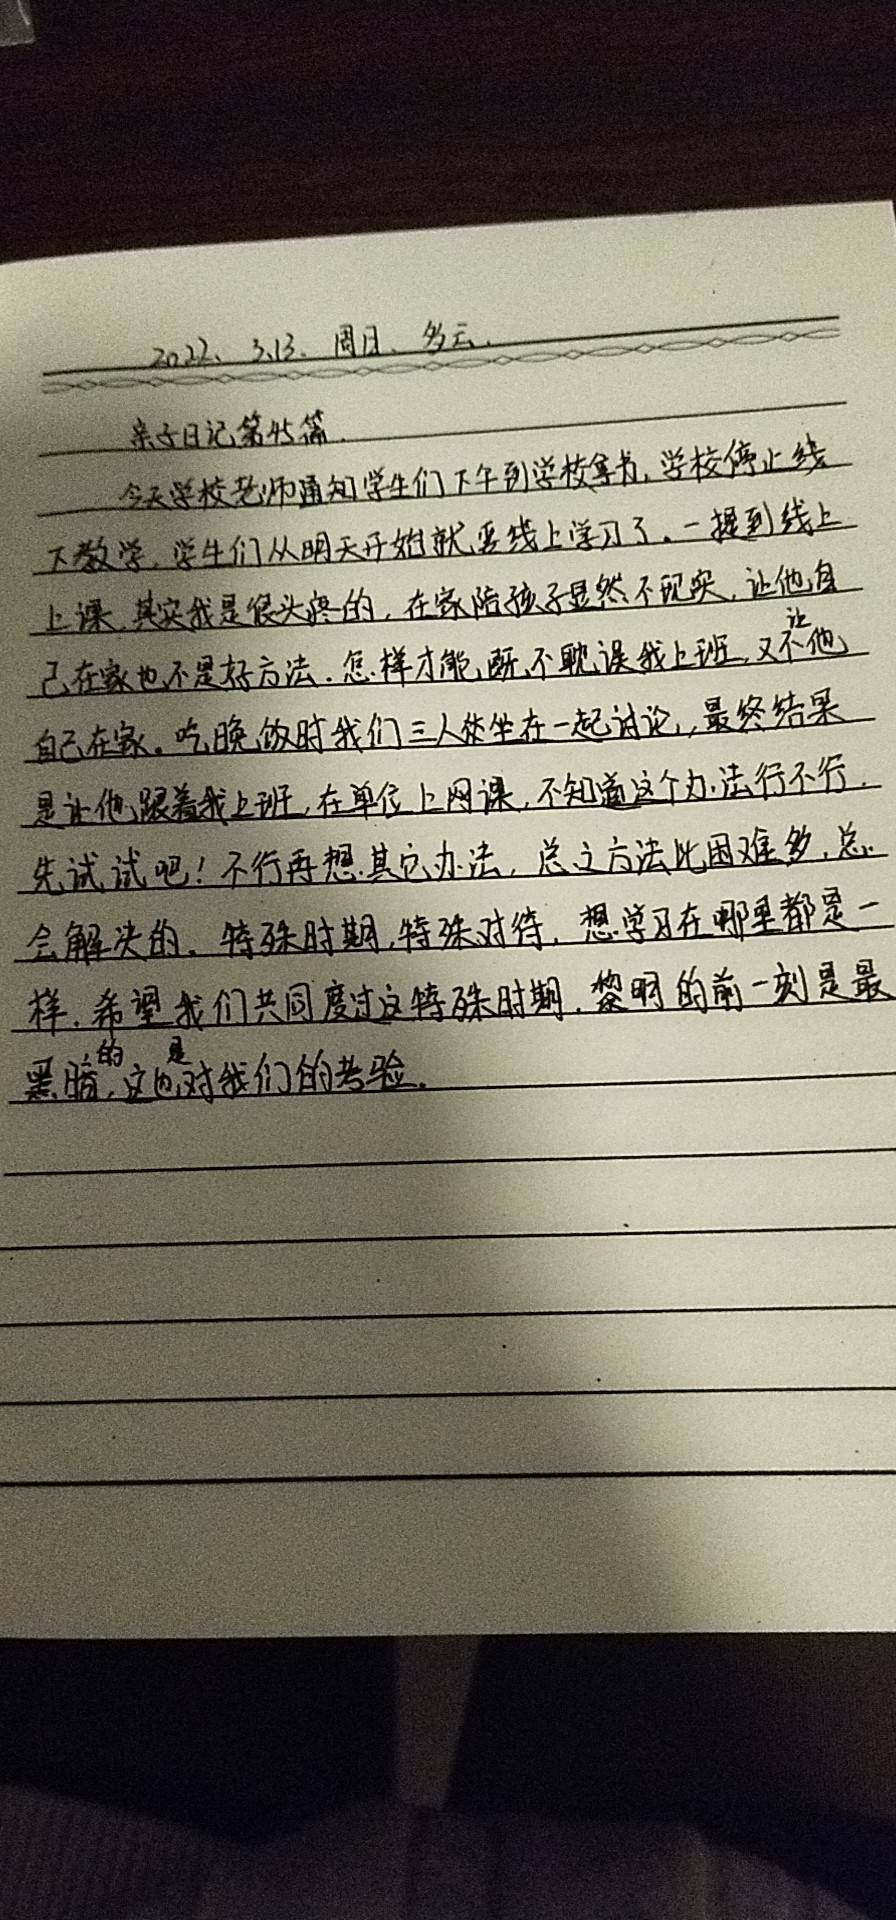 2022、3、13、周日、多云、
亲子日记第45篇、
今天学校老师通知学生们下午到学校拿书，学校停止线
下教学，学生们从明天开始就要线上学习了。一提到线上
上课，其实我是很头疼的，在家陪孩子显然不现实，让他自
己在家也不是好方法．怎样才能既不耽误我上班，又不让他
自己在家。吃晚饭时我们三人坐在一起讨论，最终结果
是让他跟着我上班，在单位上网课，不知道这个办法行不行，
先试试吧！不行再想其它办法，总之方法比困难多，总
会解决的。特殊时期，特殊对待，想学习在哪里都是一
样，希望我们共同度过这特殊时期，黎明的前一刻是最
黑暗的，这也是对我们的考验。